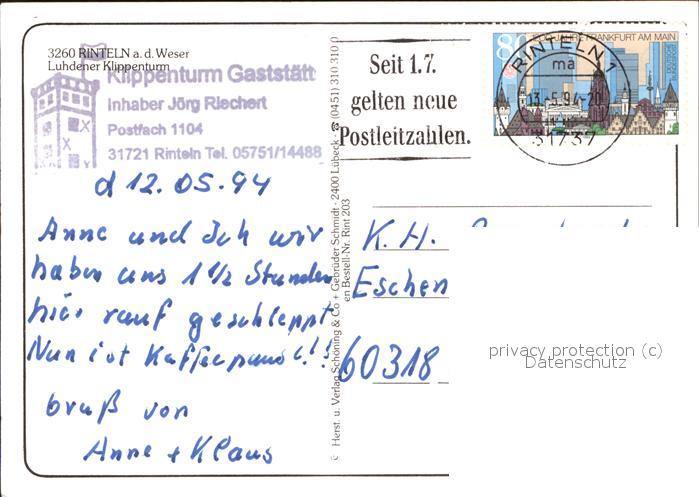 3260 RINTELN a. d. Weser
Luhdener Klippenturm
Klippenturm Gaststätt
Inhaber Jörg Riechert
Postfach 1104
31721 Rinteln Tel. 05751/14488
d 12.05.94
Anne und Ich wir
haben uns 1 1/2 Stunden
hier rauf geschleppt
Nun ist Kaffeepause!!!
Gruß von
Anne + Klaus
© Herst. u. Verlag Schöning & Co + Gebrüder Schmidt · 2400 Lübeck · ☎ (0451) 310 310 0
en Bestell-Nr. Rint 203
Seit 1.7.
gelten neue
Postleitzahlen.
80
JAHRE FRANKFURT AM MAIN
DEUTSCHE BUNDESPOST
RINTELN 1
ma
13.-5.94-20
31737
K. H.
Eschen
60318
privacy protection (c)
Datenschutz